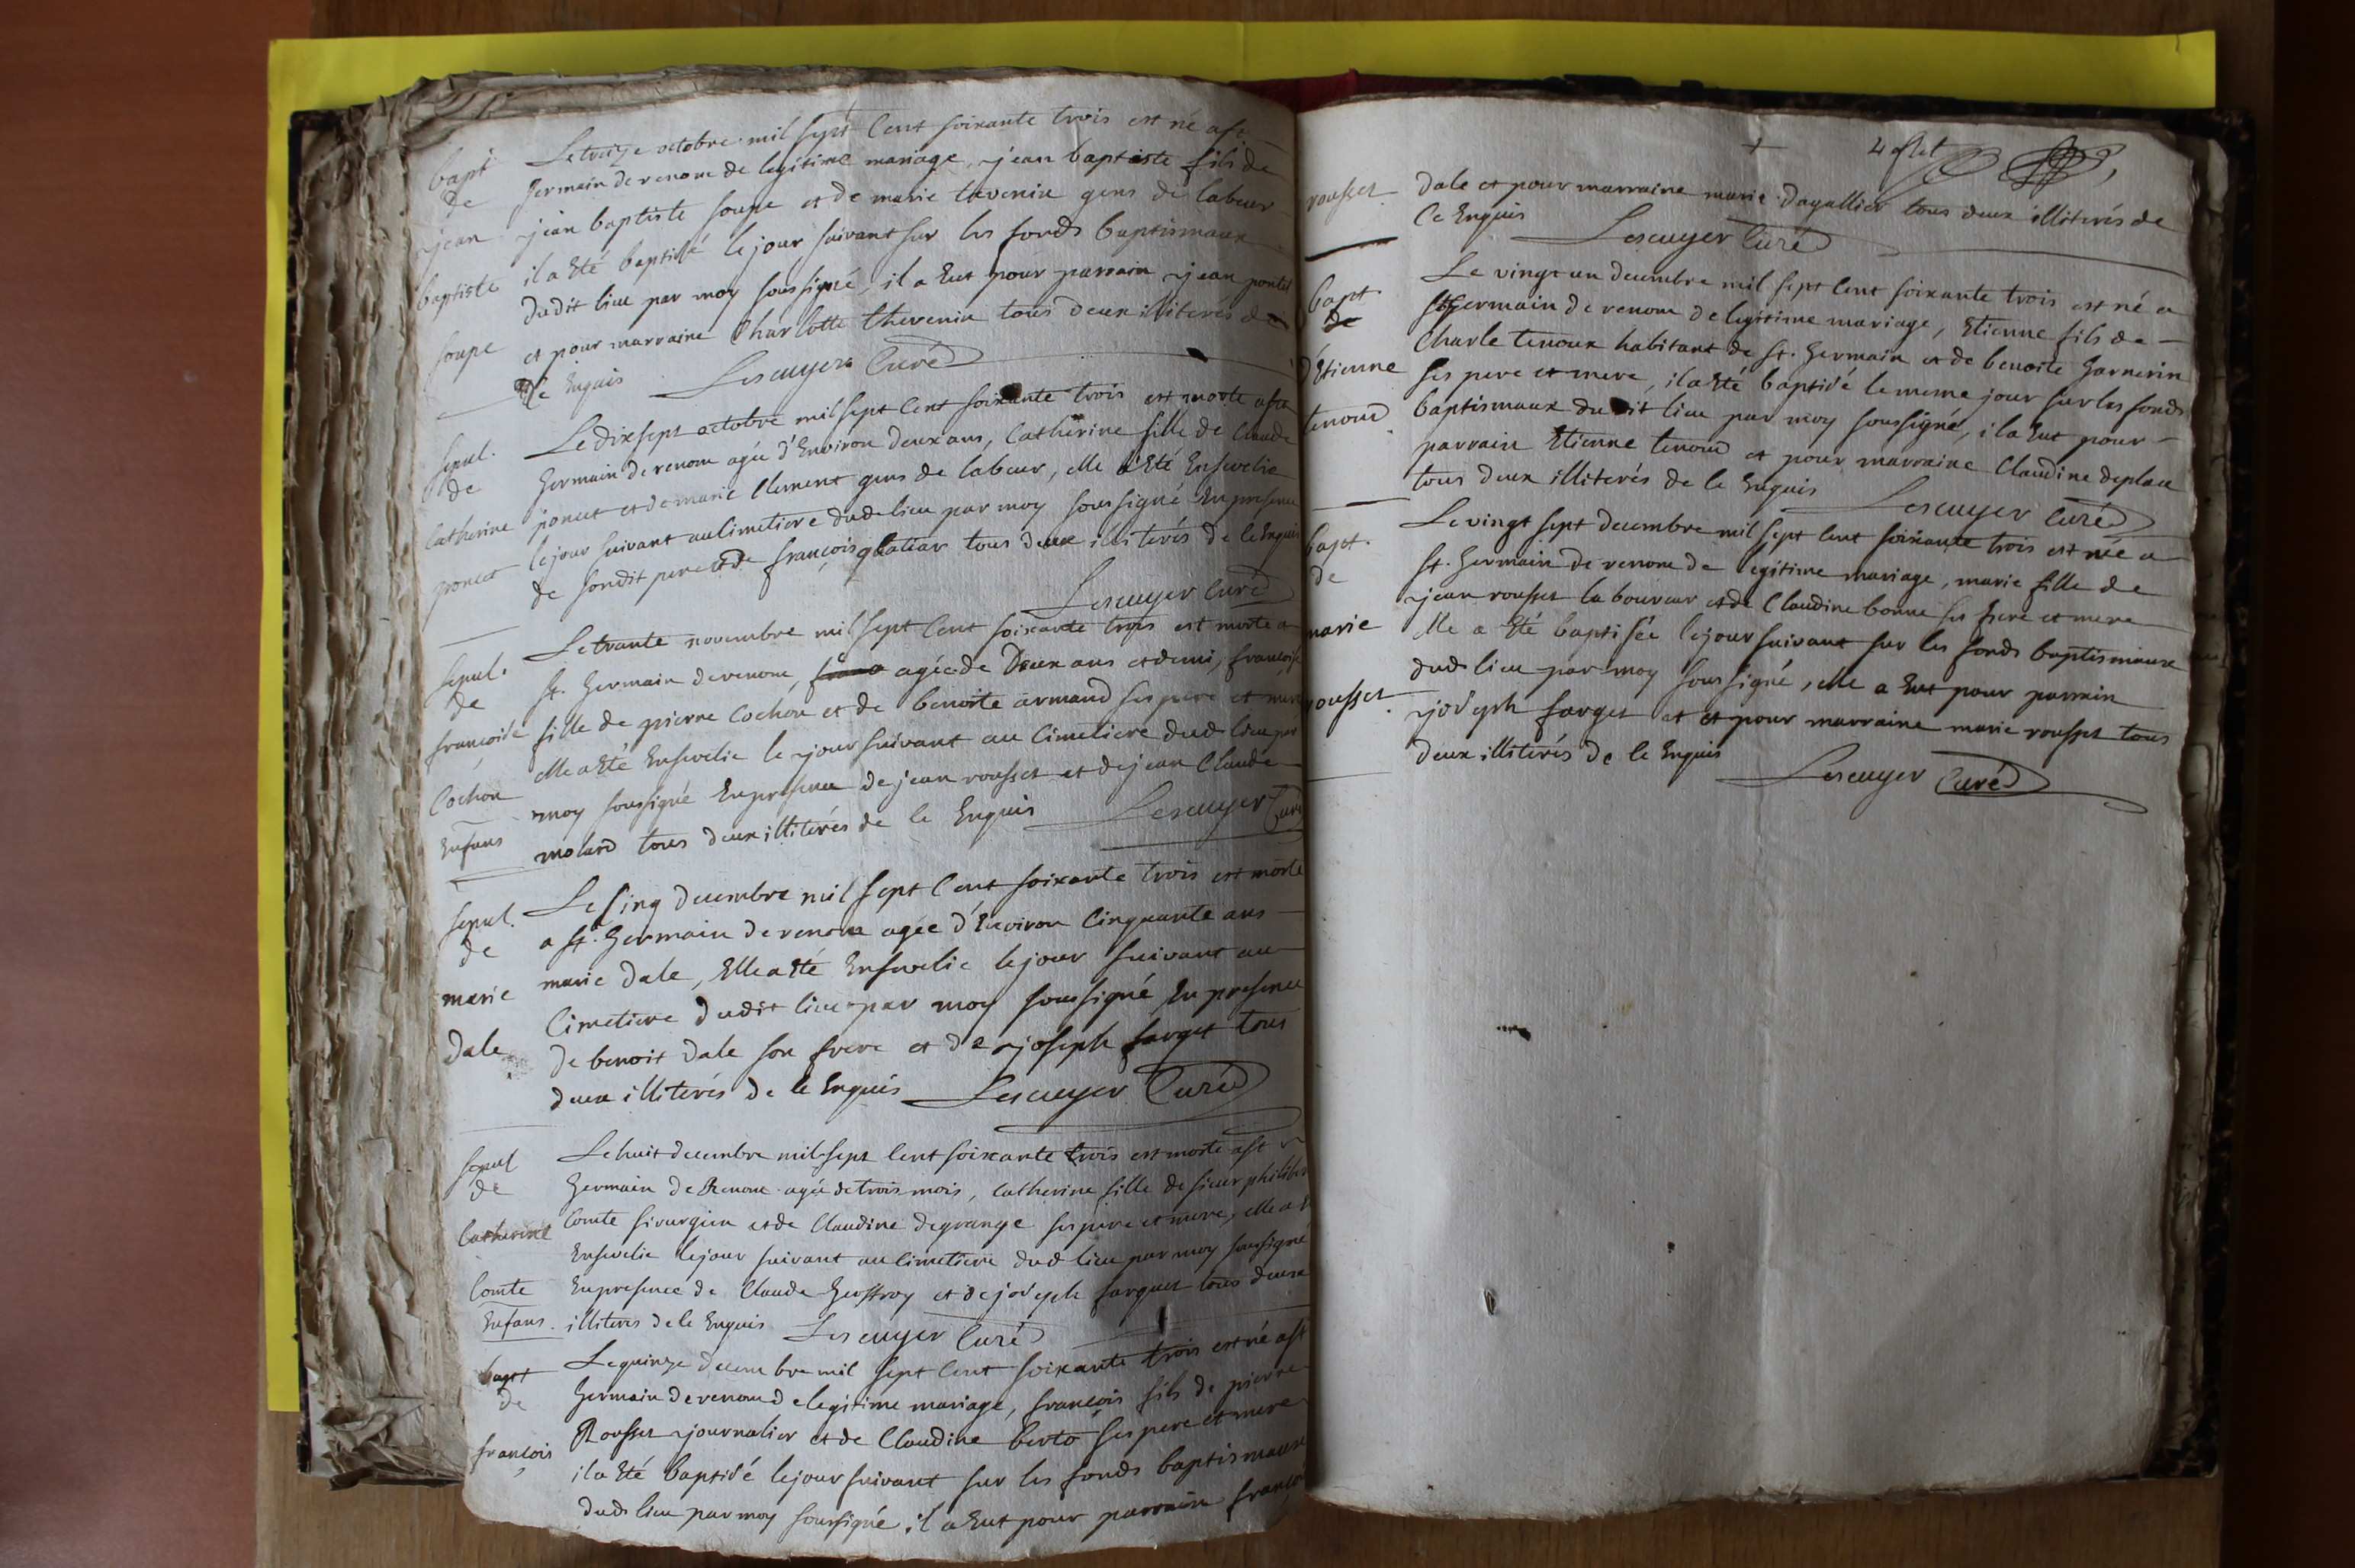 bapt
de
jean
baptiste
soupe
Le treize octobre mil sept cent soixante trois est né a st
germain de renom de legitime mariage, jean baptiste fils de
jean baptiste soupe et de marie tavenin gens de labeur
il a Eté baptisé le jour suivant sur les fonds baptismaux
dudit lieu par moy soussigné, il a Eut pour parrain jean
et pour marraine Charlotte thevenin tous deux illiterés de
ce Enquis Lescuyer Curé
sepul.
de
Catherine
poncet
Le dix sept octobre mil sept cent soixante trois est morte a st
germain de renom agée d'Environ deux ans, Catherine fille de Claude
poncet et de marie Clement gens de labeur, elle a Eté Ensevelie
le jour suivant au Cimetiere dud lieu par moy soussigné En presence
de sondit pere et de françois tous deux illiterés de ce Enquis
Lescuyer Curé
sepul.
de
françoise
Cochon
Enfans
Le trante novembre mil sept cent soixante trois est morte a
st. germain de renom, agée de Deux ans et demi, françoise
fille de pierre Cochon et de benoite armand ses pere et mere
elle a Eté Ensevelie le jour suivant au Cimetiere dud lieu par
moy soussigné En presence de jean rousset et de jean Claude
molard tous deux illiterés de ce Enquis Lescuyer Curé
sepul.
de
marie
Dale
Le Cinq decembre mil sept Cent soixante trois est morte
a st. germain de renom agée d'Environ Cinquante ans
marie Dale, Elle a Eté Ensevelie le jour suivant au
Cimetiere dudit lieu par moy soussigné En presence
de benoit Dale son frere et de joseph farget tous
deux illiterés de ce Enquis Lescuyer Curé
sepul
de
Catherine
Comte
Enfans.
Le huit decembre mil sept cent soixante trois est morte a st
germain de Renom agée de trois mois, Catherine fille de sieur philiber
Comte sirurgien et de Claudine degrange ses pere et mere, elle a E
Ensevelie le jour suivant au Cimetiere dud lieu par moy soussigné
En presence de Claude geoffroy et de joseph farguet tous deux
illiteres de ce Enquis Lescuyer Curé
bapt
de
françois
Le quinze decembre mil sept Cent soixante trois est né a st
germain de renom de legitime mariage, françois fils de pierre
Rousset journalier et de Claudine berto ses pere et mere
il a Eté baptisé le jour suivant sur les fonds baptismaux
dud lieu par moy soussigné, il a Eut pour parrain françoi
rousset
Dale et pour marraine marie dagallier tous deux illiterés de
Ce Enquis Lescuyer Curé
bapt
de
d'Etienne
tenoud
Le vingt un decembre mil sept Cent soixante trois est né a
st germain de renom de legitime mariage, Etienne fils de
Charle tenoux habitant de st. germain et de benoite garnerin
ses pere et mere, il a Eté baptisé le meme jour sur les fonds
baptismaux dudit lieu par moy soussigné, il a Eut pour
parrain Etienne tenoud et pour marraine Claudine deplace
tous deux illiterés de ce Enquis Lescuyer Curé
bapt.
de
marie
rousset.
Le vingt sept decembre mil sept cent soixante trois est née a
st. germain de renom de legitime mariage, marie fille de
jean rousset laboureur et de Claudine bonne ses pere et mere
elle a Eté baptisée le jour suivant sur les fonds baptismaux
dud lieu par moy soussigné, elle a Eut pour parrain
joseph farget et et pour marraine marie rousset tous
deux illiterés de ce Enquis
Lescuyer Curé